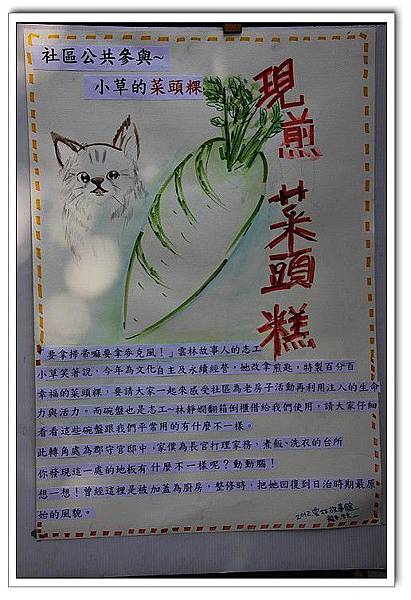 社區公共參與~
小草的菜頭粿
現煎菜頭糕
「要拿掃帚嘛要拿麥克風！」雲林故事人的志工
小草笑著說，今年為文化自主及永續經營，她改拿煎匙，特製百分百
幸福的菜頭粿，要請大家一起來感受社區為老房子活動再利用注入的生命
力與活力。而碗盤也是志工-林靜嫻翻箱倒櫃借給我們使用，請大家仔細
看看這些碗盤跟我們平常用的有什麼不一樣。
此轉角處為郡守官邸中，家僕為長官打理家務，煮飯、洗衣的台所
你發現這一處的地板有什麼不一樣呢？動動腦！
想一想！曾經這裡是被加蓋為廚房，整修時，把她回復到日治時期最原
始的風貌。
2012 雲林故事館